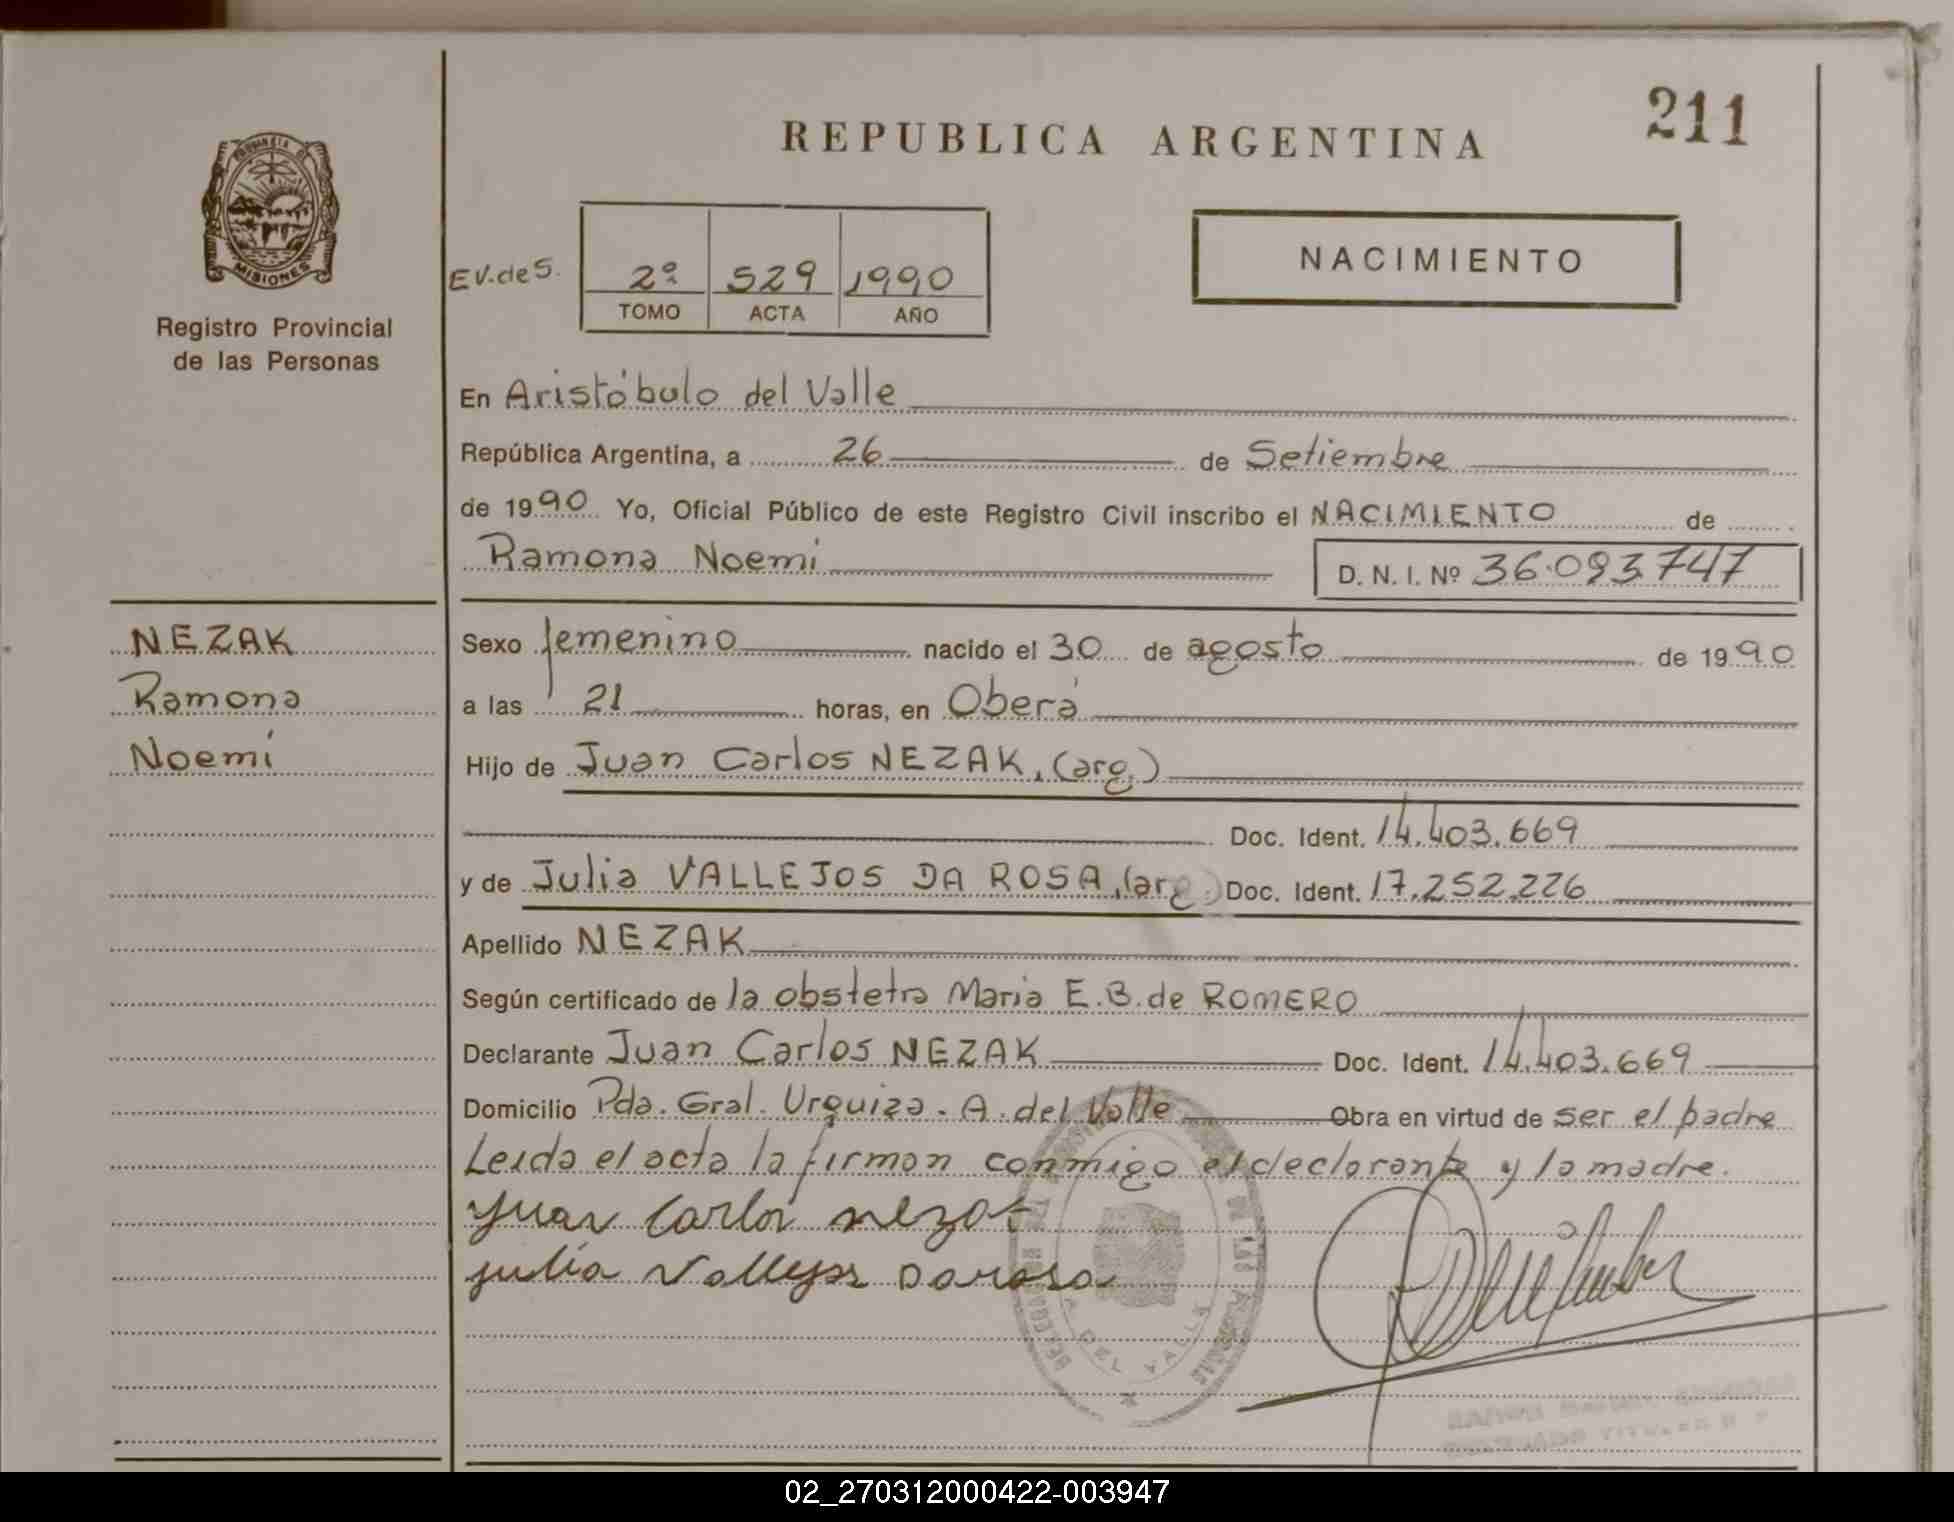 211
REPUBLICA ARGENTINA
PROVINCIA DE
MISIONES
Registro Provincial
de las Personas
EV. de S.
2º 529 1990
TOMO ACTA AÑO
NACIMIENTO
En Aristóbulo del Valle
República Argentina, a 26 de Setiembre
de 1990 Yo, Oficial Público de este Registro Civil inscribo el NACIMIENTO de
Ramona Noemí
D. N. I. Nº 36.093.747
NEZAK
Ramona
Noemí
Sexo femenino nacido el 30 de agosto de 1990
a las 21 horas, en Oberá
Hijo de Juan Carlos NEZAK, (arg.)
Doc. Ident. 14.403.669
y de Julia VALLEJOS DA ROSA, (arg.) Doc. Ident. 17.252.226
Apellido NEZAK
Según certificado de la obstetra Maria E. B. de ROMERO
Declarante Juan Carlos NEZAK Doc. Ident. 14.403.669
Domicilio Pda. Gral. Urquiza. A. del Valle Obra en virtud de ser el padre
Leida el acta la firman conmigo el declarante y la madre.
Juan Carlos nezak
julia Vallejos Darosa
A. DEL VALLE
02_270312000422-003947